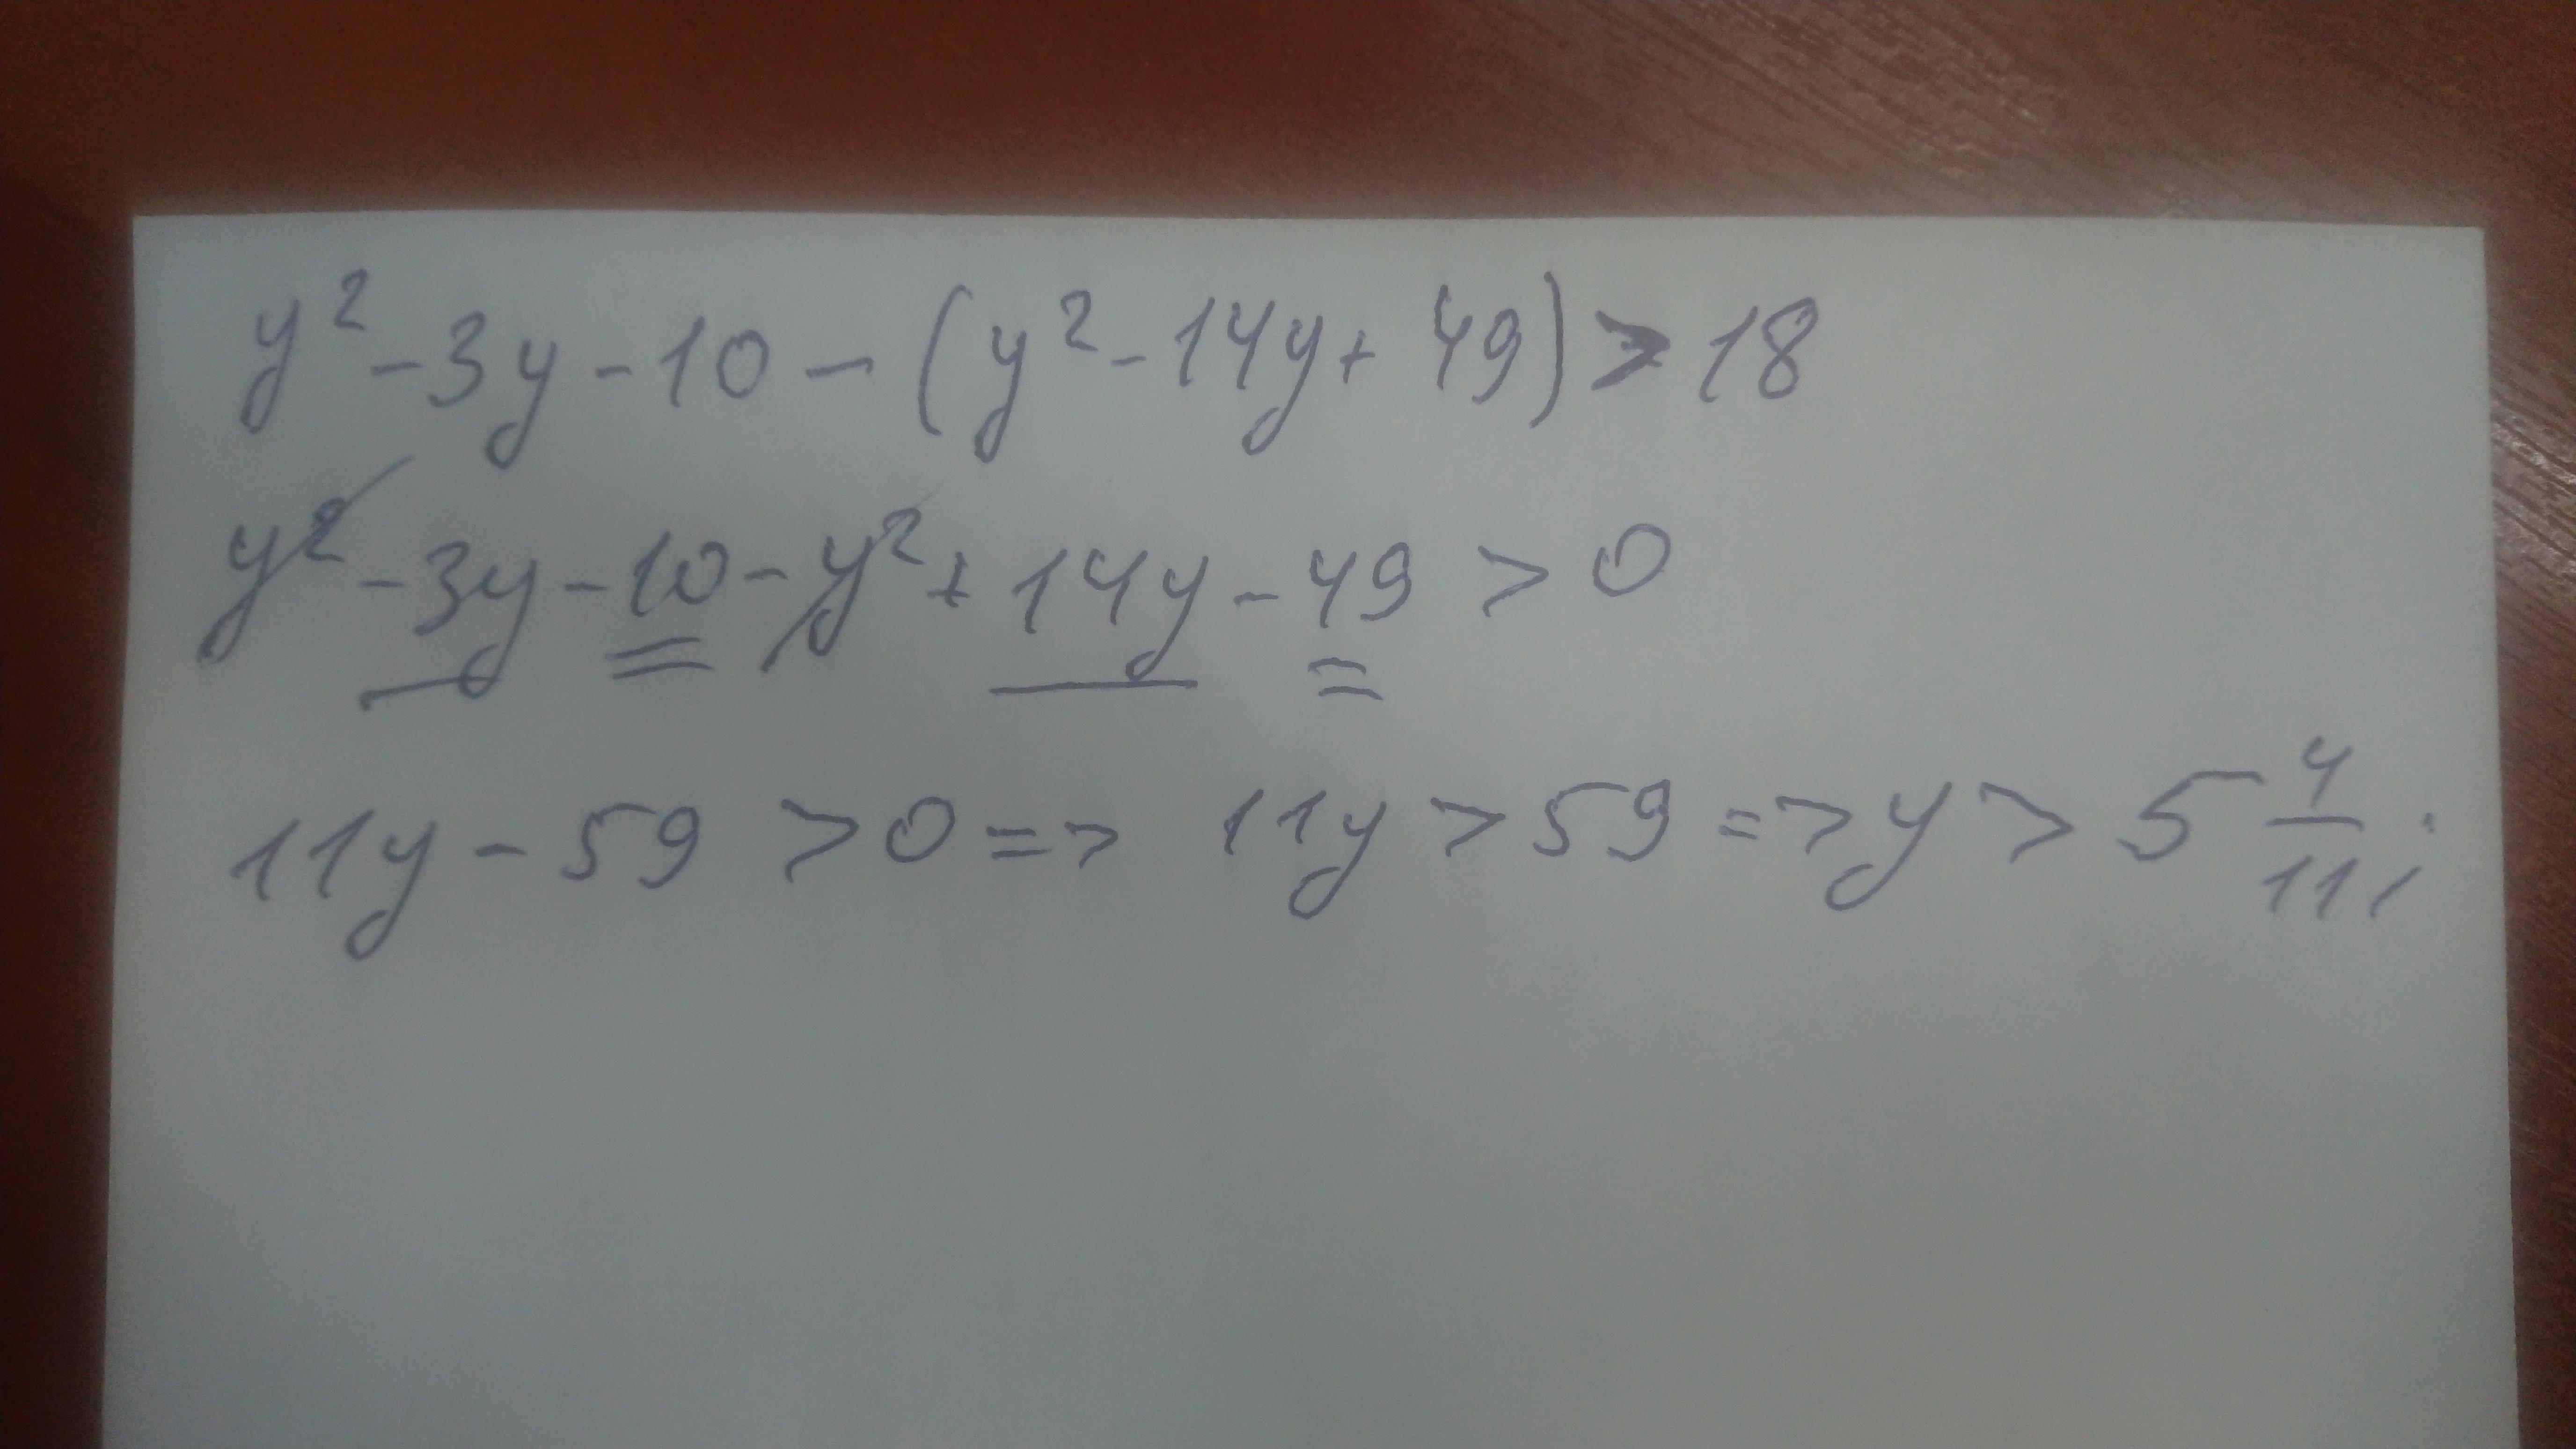 y² - 3y - 10 - (y² - 14y + 49) > 18
y² - 3y - 10 - y² + 14y - 49 > 0
11y - 59 > 0 => 11y > 59 => y > 5 4/11;